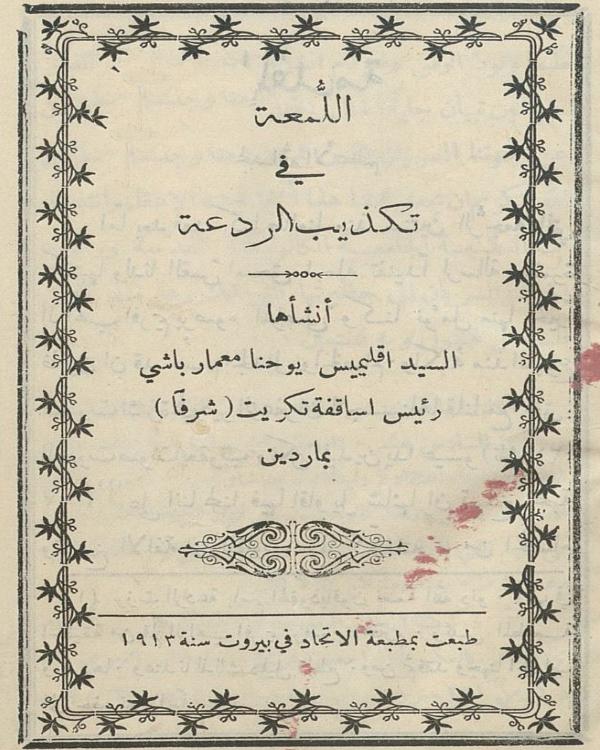 اللُّمعة
في
تكذيب الردعة
أنشأها
السيد اقليميس يوحنا معمار باشي
رئيس اساقفة تكريت (شرفًا)
بماردين
طبعت بمطبعة الاتحاد في بيروت سنة ١٩١٣